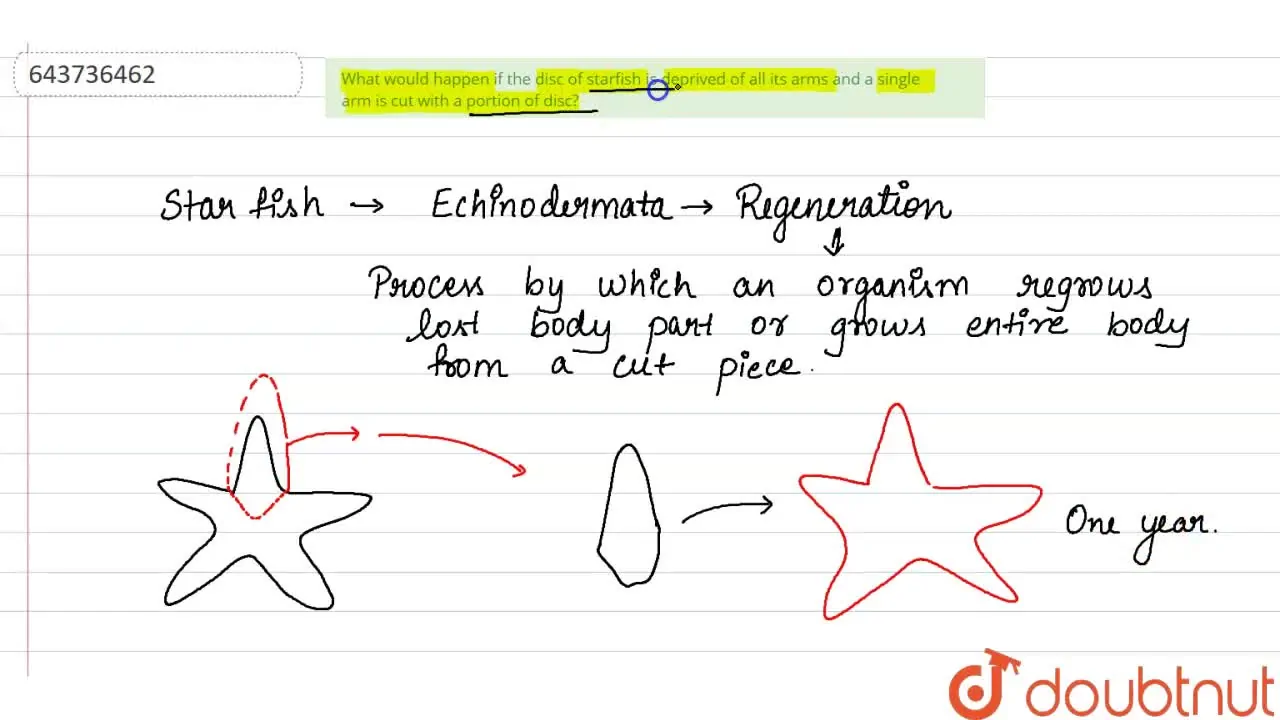 643736462
What would happen if the disc of starfish is deprived of all its arms and a single
arm is cut with a portion of disc?
Star fish → Echinodermata → Regeneration
↓
Process by which an organism regrows
lost body part or grows entire body
from a cut piece.
One year.
doubtnut